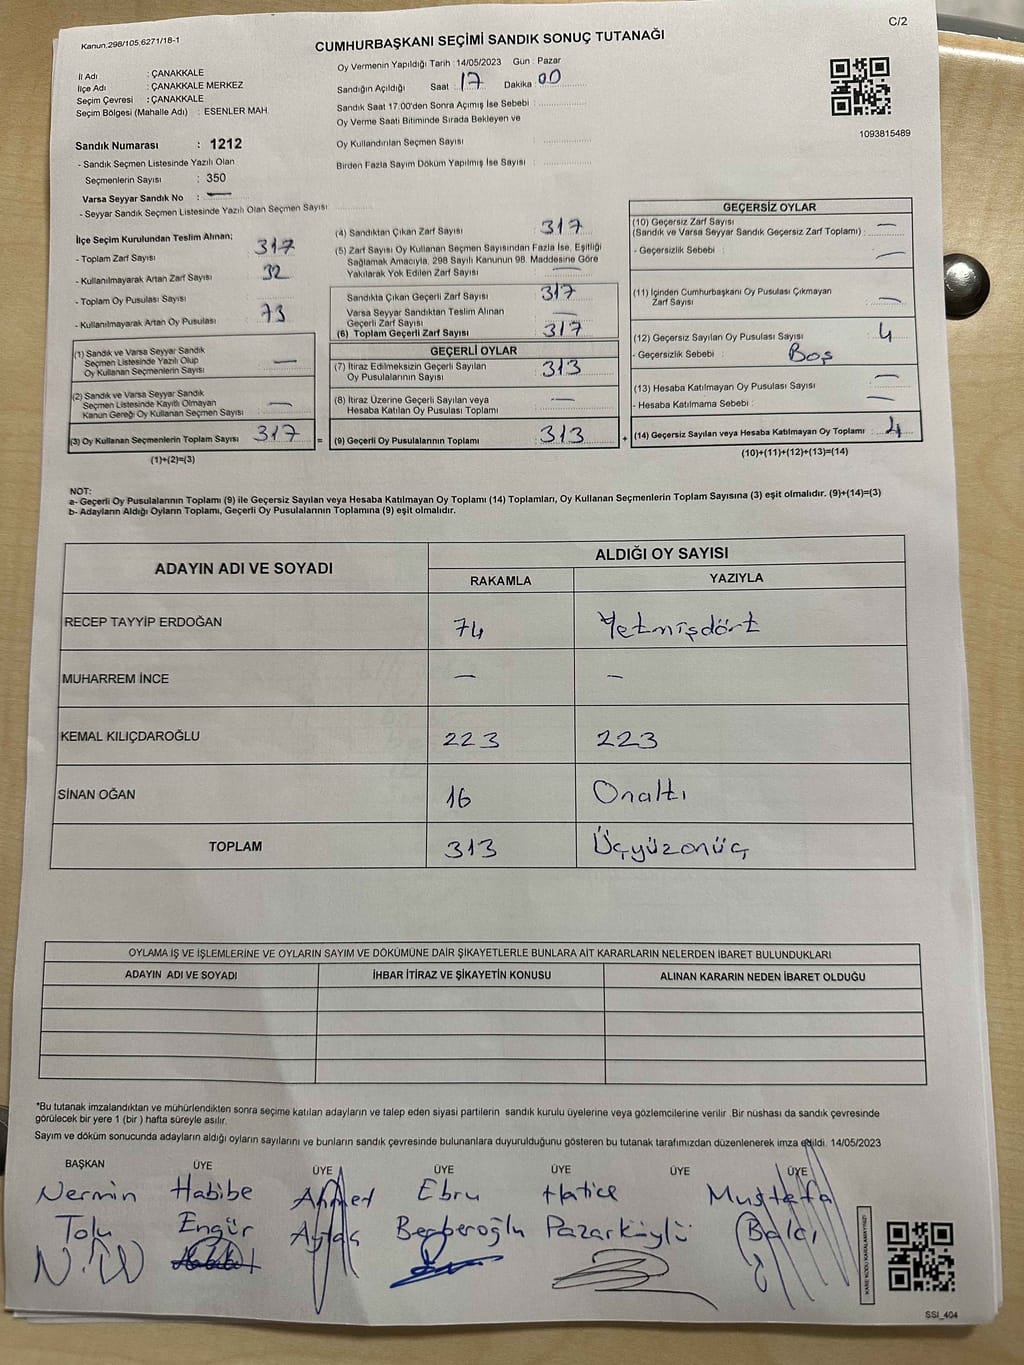 C/2
Kanun,298/105,6271/18-1
CUMHURBAŞKANI SEÇİMİ SANDIK SONUÇ TUTANAĞI
İl Adı : ÇANAKKALE
İlçe Adı : ÇANAKKALE MERKEZ
Seçim Çevresi : ÇANAKKALE
Seçim Bölgesi (Mahalle Adı) : ESENLER MAH.
Oy Vermenin Yapıldığı Tarih :14/05/2023 Gün : Pazar
Sandığın Açıldığı Saat : 17 Dakika : 00
Sandık Saat 17:00'den Sonra Açımış İse Sebebi :
Oy Verme Saati Bitiminde Sırada Bekleyen ve
Oy Kullandırılan Seçmen Sayısı :
Birden Fazla Sayım Döküm Yapılmış İse Sayısı :
1093815489
Sandık Numarası : 1212
- Sandık Seçmen Listesinde Yazılı Olan
Seçmenlerin Sayısı : 350
Varsa Seyyar Sandık No : —
- Seyyar Sandık Seçmen Listesinde Yazılı Olan Seçmen Sayısı:
İlçe Seçim Kurulundan Teslim Alınan;
- Toplam Zarf Sayısı : 317
- Kullanılmayarak Artan Zarf Sayısı : 32
- Toplam Oy Pusulası Sayısı :
- Kullanılmayarak Artan Oy Pusulası : 73
(1) Sandık ve Varsa Seyyar Sandık
Seçmen Listesinde Yazılı Olup
Oy Kullanan Seçmenlerin Sayısı : —
(2) Sandık ve Varsa Seyyar Sandık
Seçmen Listesinde Kayıtlı Olmayan
Kanun Gereği Oy Kullanan Seçmen Sayısı : —
(3) Oy Kullanan Seçmenlerin Toplam Sayısı : 317
(1)+(2)=(3)
(4) Sandıktan Çıkan Zarf Sayısı : 317
(5) Zarf Sayısı Oy Kullanan Seçmen Sayısından Fazla İse, Eşitliği
Sağlamak Amacıyla, 298 Sayılı Kanunun 98. Maddesine Göre
Yakılarak Yok Edilen Zarf Sayısı : —
Sandıkta Çıkan Geçerli Zarf Sayısı : 317
Varsa Seyyar Sandıktan Teslim Alınan
Geçerli Zarf Sayısı : —
(6) Toplam Geçerli Zarf Sayısı : 317
GEÇERLİ OYLAR
(7) İtiraz Edilmeksizin Geçerli Sayılan
Oy Pusulalarının Sayısı : 313
(8) İtiraz Üzerine Geçerli Sayılan veya
Hesaba Katılan Oy Pusulası Toplamı : —
= (9) Geçerli Oy Pusulalarının Toplamı : 313 +
GEÇERSİZ OYLAR
(10) Geçersiz Zarf Sayısı
(Sandık ve Varsa Seyyar Sandık Geçersiz Zarf Toplamı) : —
- Geçersizlik Sebebi : —
(11) İçinden Cumhurbaşkanı Oy Pusulası Çıkmayan
Zarf Sayısı : —
(12) Geçersiz Sayılan Oy Pusulası Sayısı : 4
- Geçersizlik Sebebi : Boş
(13) Hesaba Katılmayan Oy Pusulası Sayısı : —
- Hesaba Katılmama Sebebi : —
(14) Geçersiz Sayılan veya Hesaba Katılmayan Oy Toplamı : 4
(10)+(11)+(12)+(13)=(14)
NOT:
a- Geçerli Oy Pusulalarının Toplamı (9) ile Geçersiz Sayılan veya Hesaba Katılmayan Oy Toplamı (14) Toplamları, Oy Kullanan Seçmenlerin Toplam Sayısına (3) eşit olmalıdır. (9)+(14)=(3)
b- Adayların Aldığı Oyların Toplamı, Geçerli Oy Pusulalarının Toplamına (9) eşit olmalıdır.
ADAYIN ADI VE SOYADI
ALDIĞI OY SAYISI
RAKAMLA YAZIYLA
RECEP TAYYİP ERDOĞAN 74 Yetmişdört
MUHARREM İNCE — —
KEMAL KILIÇDAROĞLU 223 223
SİNAN OĞAN 16 Onaltı
TOPLAM 313 Üçyüzonüç
OYLAMA İŞ VE İŞLEMLERİNE VE OYLARIN SAYIM VE DÖKÜMÜNE DAİR ŞİKAYETLERLE BUNLARA AİT KARARLARIN NELERDEN İBARET BULUNDUKLARI
ADAYIN ADI VE SOYADI İHBAR İTİRAZ VE ŞİKAYETİN KONUSU ALINAN KARARIN NEDEN İBARET OLDUĞU
*Bu tutanak imzalandıktan ve mühürlendikten sonra seçime katılan adayların ve talep eden siyasi partilerin sandık kurulu üyelerine veya gözlemcilerine verilir .Bir nüshası da sandık çevresinde
görülecek bir yere 1 (bir ) hafta süreyle asılır.
Sayım ve döküm sonucunda adayların aldığı oyların sayılarını ve bunların sandık çevresinde bulunanlara duyurulduğunu gösteren bu tutanak tarafımızdan düzenlenerek imza edildi. 14/05/2023
BAŞKAN ÜYE ÜYE ÜYE ÜYE ÜYE ÜYE
Nermin Habibe Ahmed Ebru Hatice Mustafa
Tolu Engür Berberoğlu Pazarköylü Balcı
KARE KODU KARALAMAYINIZ!
SSI_404